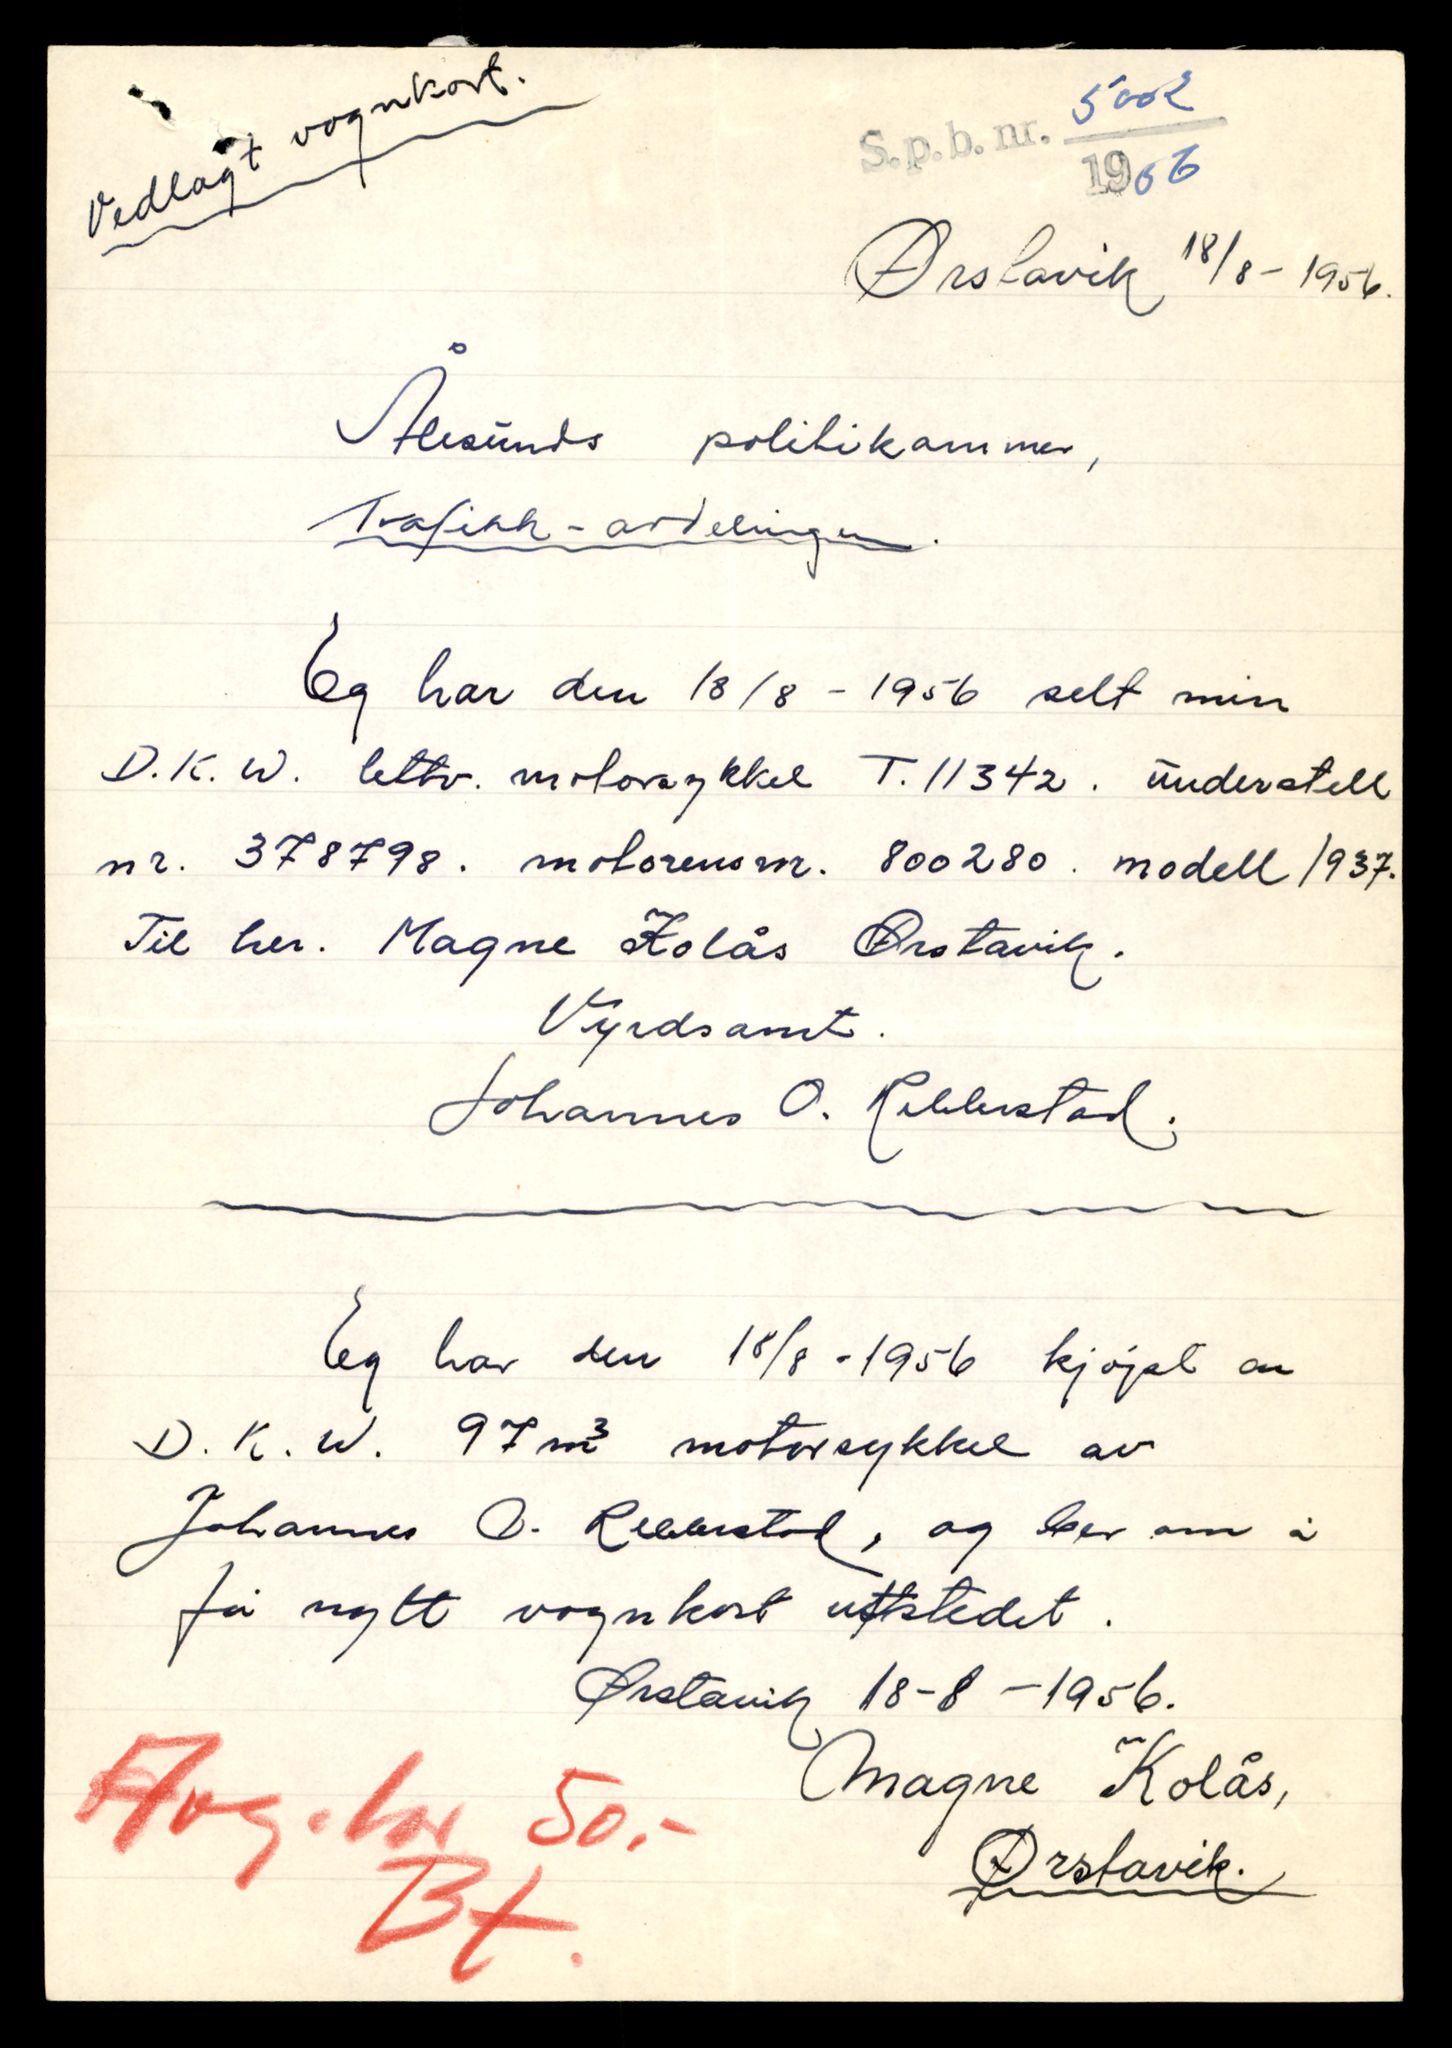 Vedlagt vognkort.
S.p.b. nr. 5002
1956
Ørstavik 18/8 - 1956.
Ålesunds politikammer,
Trafikk - avdelingen.
Eg har den 18/8 - 1956 selt min
D.K.W. lettv. motorsykkel T.11342. understell
nr. 378798. motorens nr. 800280. modell 1937.
Til her. Magne Kolås Ørstavik.
Vyrdsamt.
Johannes O. Rebbestad.
Eg har den 18/8 - 1956 kjøpt en
D.K.W. 97m³ motorsykkel av
Johannes O. Rebbestad, og ber om å
få nytt vognkort utstedet.
Ørstavik 18-8-1956.
Magne Kolås,
Ørstavik.
50.-
Bt.